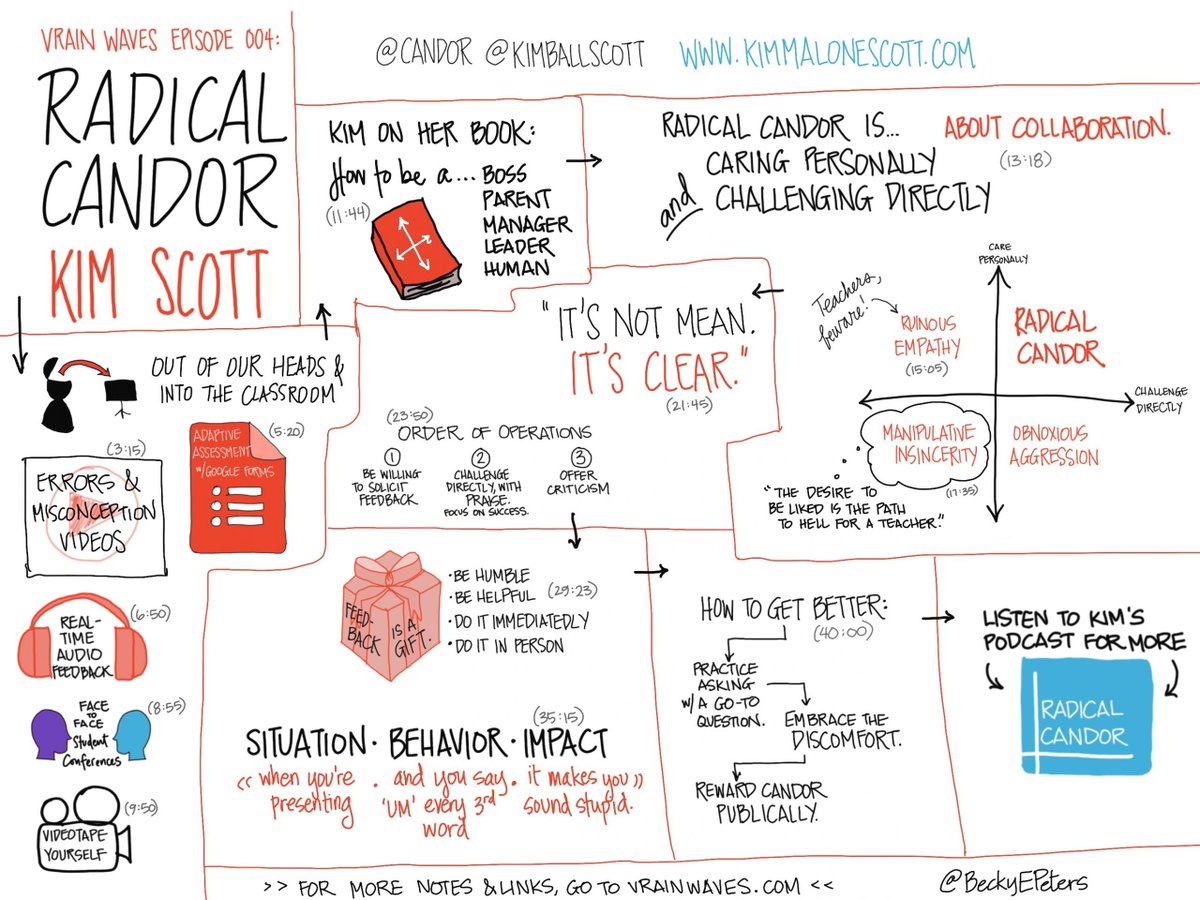 VRAIN WAVES EPISODE 004:
RADICAL
CANDOR
KIM SCOTT
@CANDOR @KIMBALLSCOTT WWW.KIMMALONESCOTT.COM
OUT OF OUR HEADS &
INTO THE CLASSROOM
(3:15)
ERRORS &
MISCONCEPTION
VIDEOS
(5:20)
ADAPTIVE
ASSESSMENT
W/GOOGLE FORMS
(6:50)
REAL-
TIME
AUDIO
FEEDBACK
(8:55)
FACE
TO
FACE
Student
Conferences
(9:50)
VIDEOTAPE
YOURSELF
KIM ON HER BOOK:
How to be a... BOSS
PARENT
MANAGER
LEADER
HUMAN
(11:44)
RADICAL CANDOR IS... ABOUT COLLABORATION.
(13:18)
CARING PERSONALLY
and CHALLENGING DIRECTLY
CARE
PERSONALLY
Teachers,
beware!
RUINOUS
EMPATHY
(15:05)
RADICAL
CANDOR
CHALLENGE
DIRECTLY
MANIPULATIVE
INSINCERITY
(17:35)
OBNOXIOUS
AGGRESSION
"THE DESIRE TO
BE LIKED IS THE PATH
TO HELL FOR A TEACHER."
"IT'S NOT MEAN.
IT'S CLEAR."
(21:45)
(23:50)
ORDER OF OPERATIONS
1
BE WILLING
TO SOLICIT
FEEDBACK
2
CHALLENGE
DIRECTLY, WITH
PRAISE.
FOCUS ON SUCCESS.
3
OFFER
CRITICISM
FEED-
BACK
IS A
GIFT.
• BE HUMBLE
• BE HELPFUL (29:23)
• DO IT IMMEDIATELY
• DO IT IN PERSON
(35:15)
SITUATION · BEHAVIOR · IMPACT
"when you're . and you say . it makes you"
presenting 'UM' every 3rd sound stupid.
word
HOW TO GET BETTER:
(40:00)
PRACTICE
ASKING
W/A GO-TO
QUESTION.
EMBRACE THE
DISCOMFORT.
REWARD CANDOR
PUBLICALLY.
LISTEN TO KIM'S
PODCAST FOR MORE
RADICAL
CANDOR
>> FOR MORE NOTES & LINKS, GO TO VRAINWAVES.COM <<
@BeckyEPeters